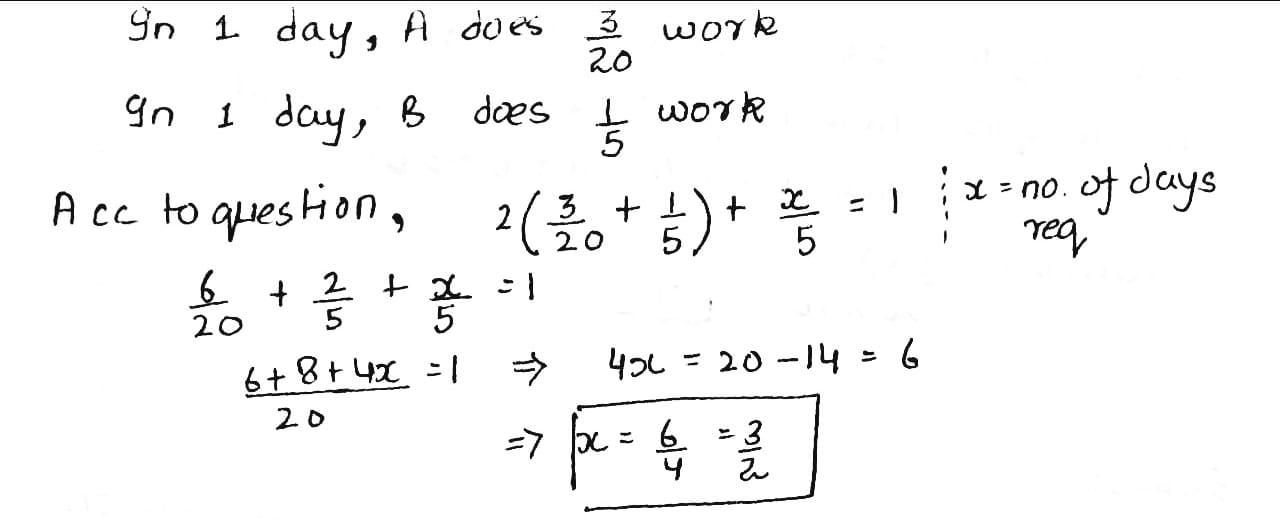 In 1 day, A does 3/20 work
In 1 day, B does 1/5 work
Acc to question, 2(3/20 + 1/5) + x/5 = 1 ⋮ x = no. of days req
6/20 + 2/5 + x/5 = 1
(6+8+4x)/20 = 1 ⇒ 4x = 20 - 14 = 6
⇒ x = 6/4 = 3/2